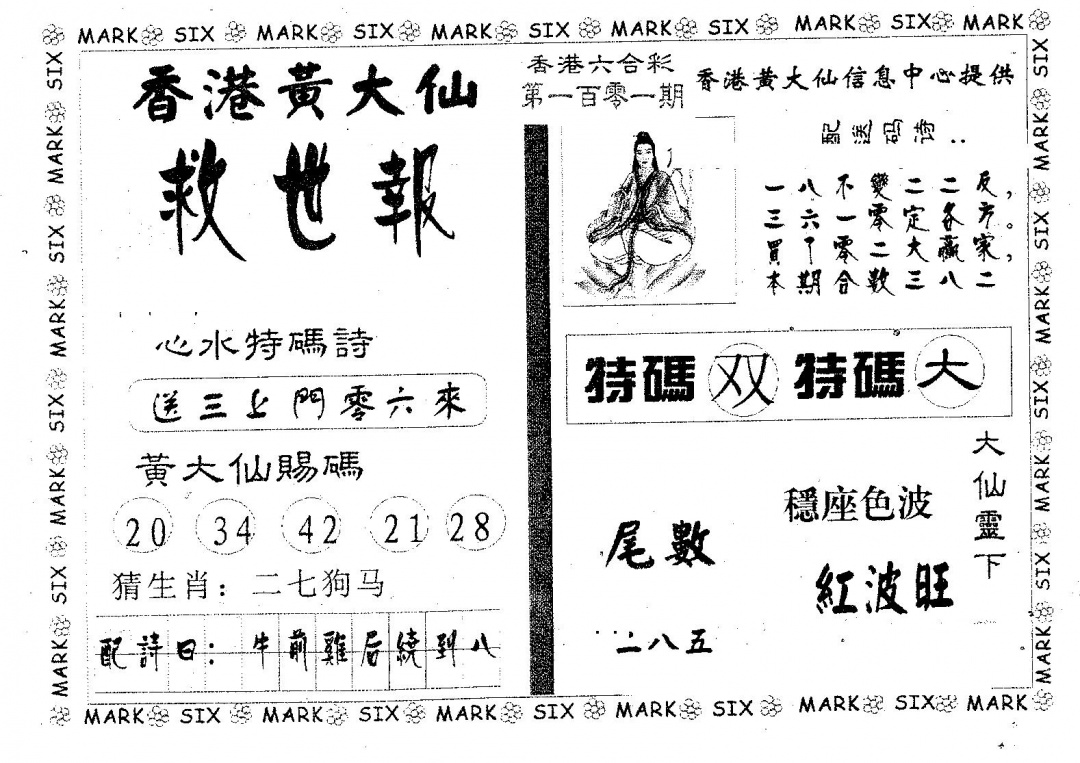 MARK SIX MARK SIX MARK SIX MARK SIX MARK SIX MARK
香港黃大仙
救世報
心水特碼詩
送三上門零六來
黃大仙賜碼
20 34 42 21 28
猜生肖：二七狗马
配詩曰：牛前雞后繞到八
香港六合彩
第一百零一期
香港黄大仙信息中心提供
配送码诗：
一八不變二二反，
三六一零定各方。
買丁零二大贏家，
本期合数三八二
特碼双 特碼大
大仙靈下
穩座色波
紅波旺
尾數
二八五
MARK SIX MARK SIX MARK SIX MARK SIX MARK SIX MARK
MARK SIX MARK SIX MARK SIX MARK SIX
MARK SIX MARK SIX MARK SIX MARK SIX